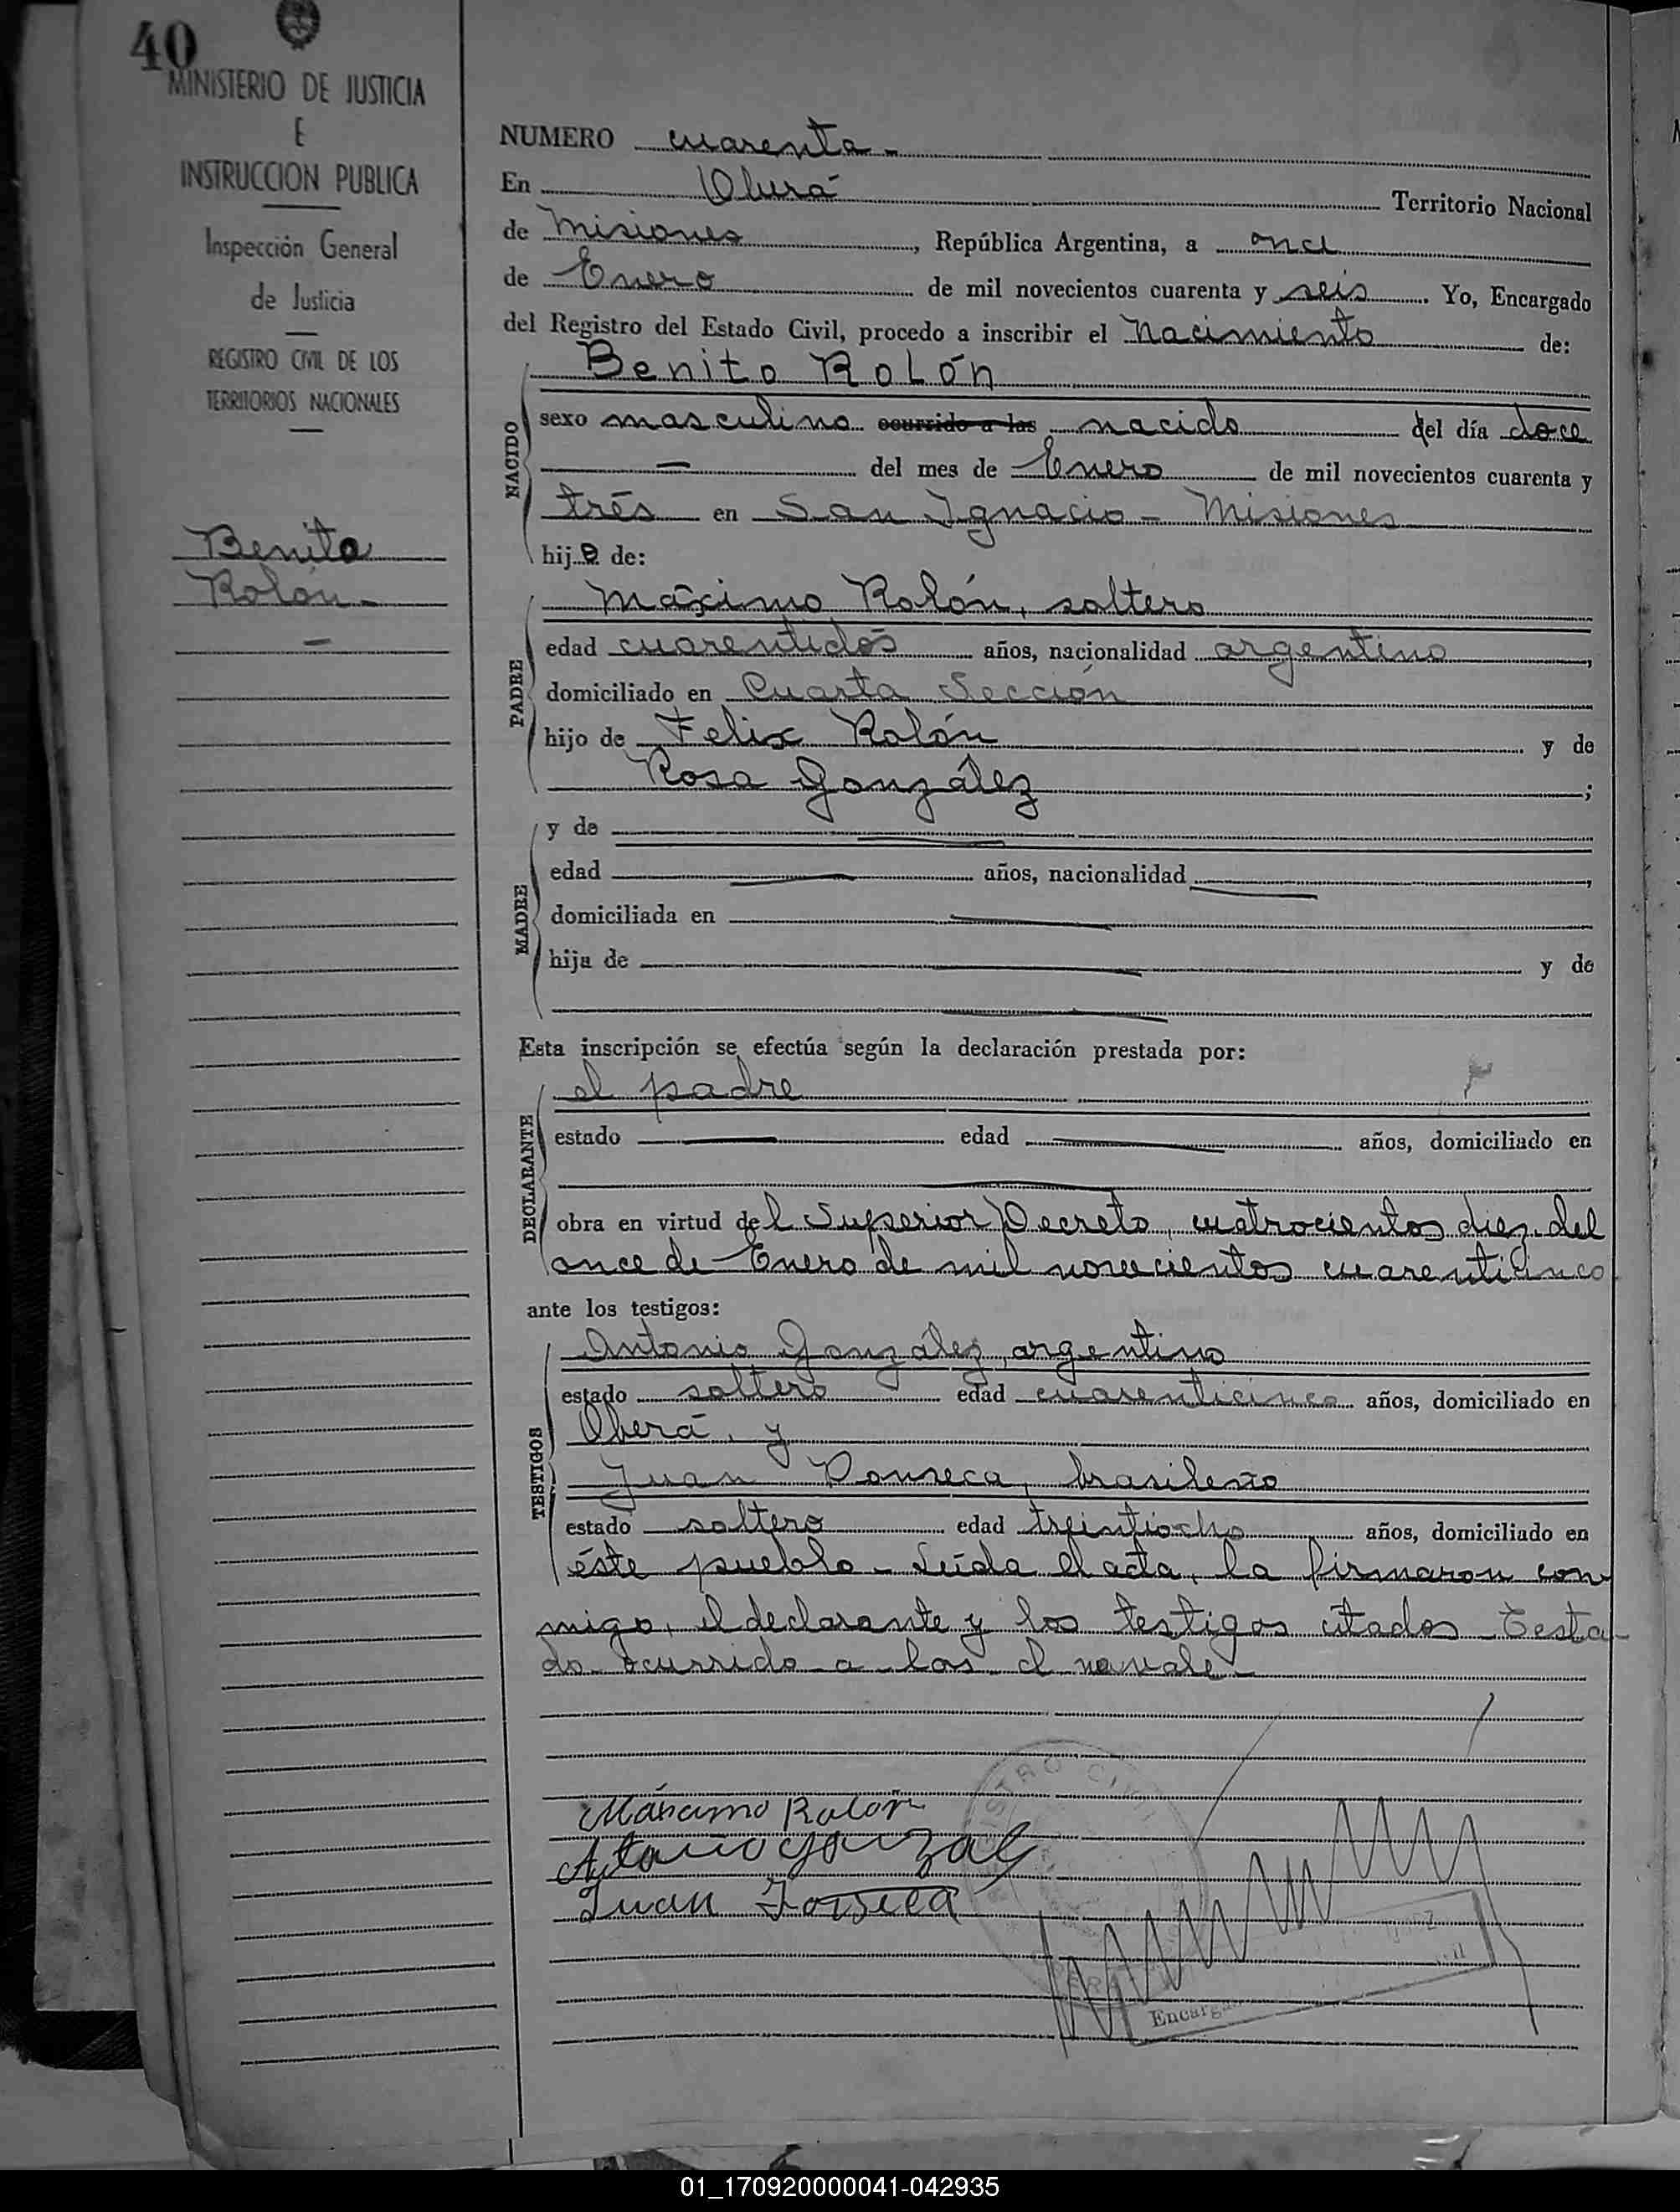 40
MINISTERIO DE JUSTICIA
E
INSTRUCCION PUBLICA
Inspección General
de Justicia
REGISTRO CIVIL DE LOS
TERRITORIOS NACIONALES
Benito
Rolón -
NUMERO cuarenta -
En Oberá Territorio Nacional
de Misiones, República Argentina, a once
de Enero de mil novecientos cuarenta y seis. Yo, Encargado
del Registro del Estado Civil, procedo a inscribir el Nacimiento de:
Benito Rolón
NACIDO
sexo masculino ocurrido a las nacido del día doce
— del mes de Enero de mil novecientos cuarenta y
trés en San Ignacio - Misiones
hijo de:
PADRE
Máximo Rolón, soltero
edad cuarentidós años, nacionalidad argentino,
domiciliado en Cuarta Sección
hijo de Felix Rolón y de
Rosa González;
MADRE
y de
edad años, nacionalidad,
domiciliada en
hija de y de
Esta inscripción se efectúa según la declaración prestada por:
DECLARANTE
el padre
estado edad años, domiciliado en
obra en virtud del Superior Decreto cuatrocientos diez del
once de Enero de mil novecientos cuarenticinco
ante los testigos:
TESTIGOS
Antonio González, argentino
estado soltero edad cuarenticinco años, domiciliado en
Oberá, y
Juan Fonseca, brasileño
estado soltero edad treintiocho años, domiciliado en
éste pueblo - Leída el acta, la firmaron con
migo, el declarante y los testigos citados Testa-
do ocurrido a las d no vale -
Máximo Rolón
Antonio Gonzalez
Juan Fonseca
REGISTRO CIVIL
Encargado
01_170920000041-042935